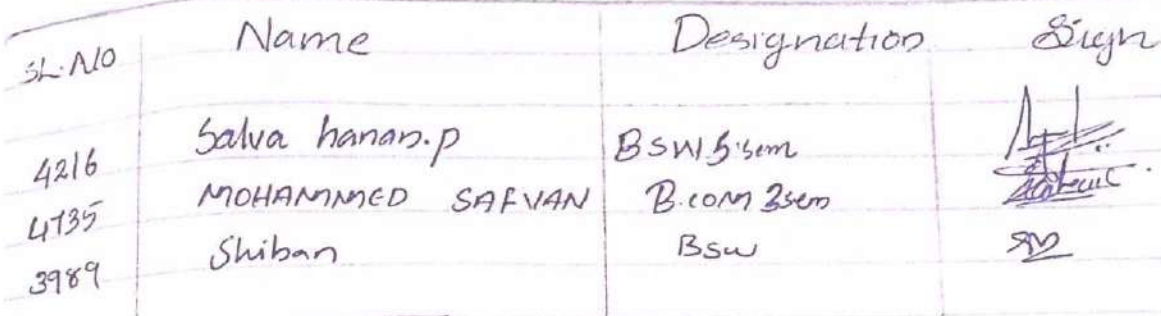 SL.NO Name Designation Sign
4216 Salva hanan.p BSW 5.sem
4735 MOHAMMED SAFVAN B.COM 3sem
3989 Shiban BSW